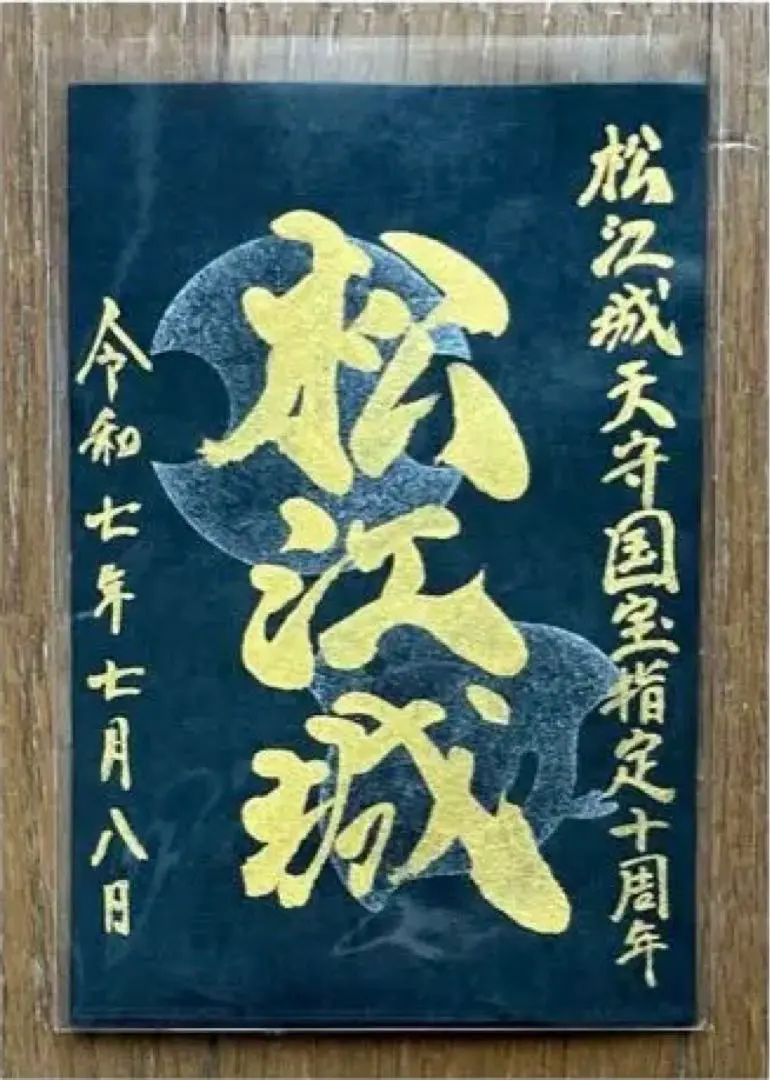 松江城天守国宝指定十周年
松江城
令和七年七月八日